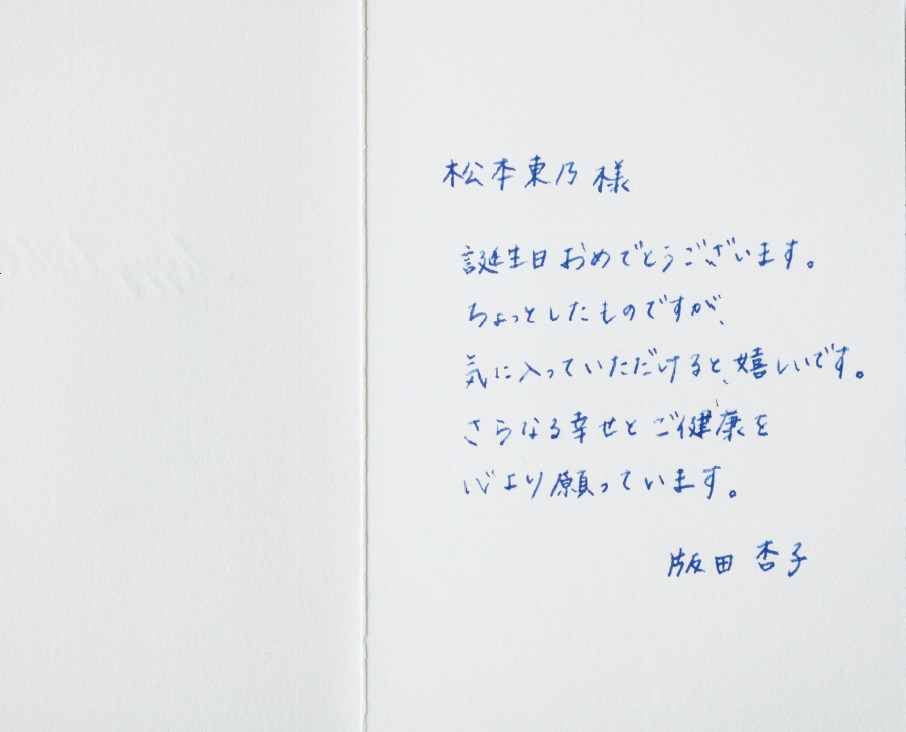 松本東乃 様
誕生日おめでとうございます。
ちょっとしたものですが、
気に入っていただけると、嬉しいです。
さらなる幸せとご健康を
心より願っています。
版田 杏子